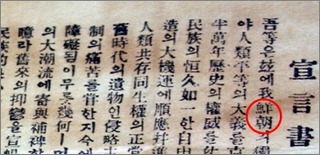 宣言書
吾等은玆에我鮮朝의獨
야人類平等의大義를克
半萬年歷史의權威를仗
民族의恒久如一한自由
造의大機運에順應幷進
人類共存同生權의正當
舊時代의遺物인侵略主
制의痛苦를嘗한지今에
障礙됨이무릇幾何ㅣ며
의大潮流에寄與補裨할
라舊來의抑鬱을宣
民族的